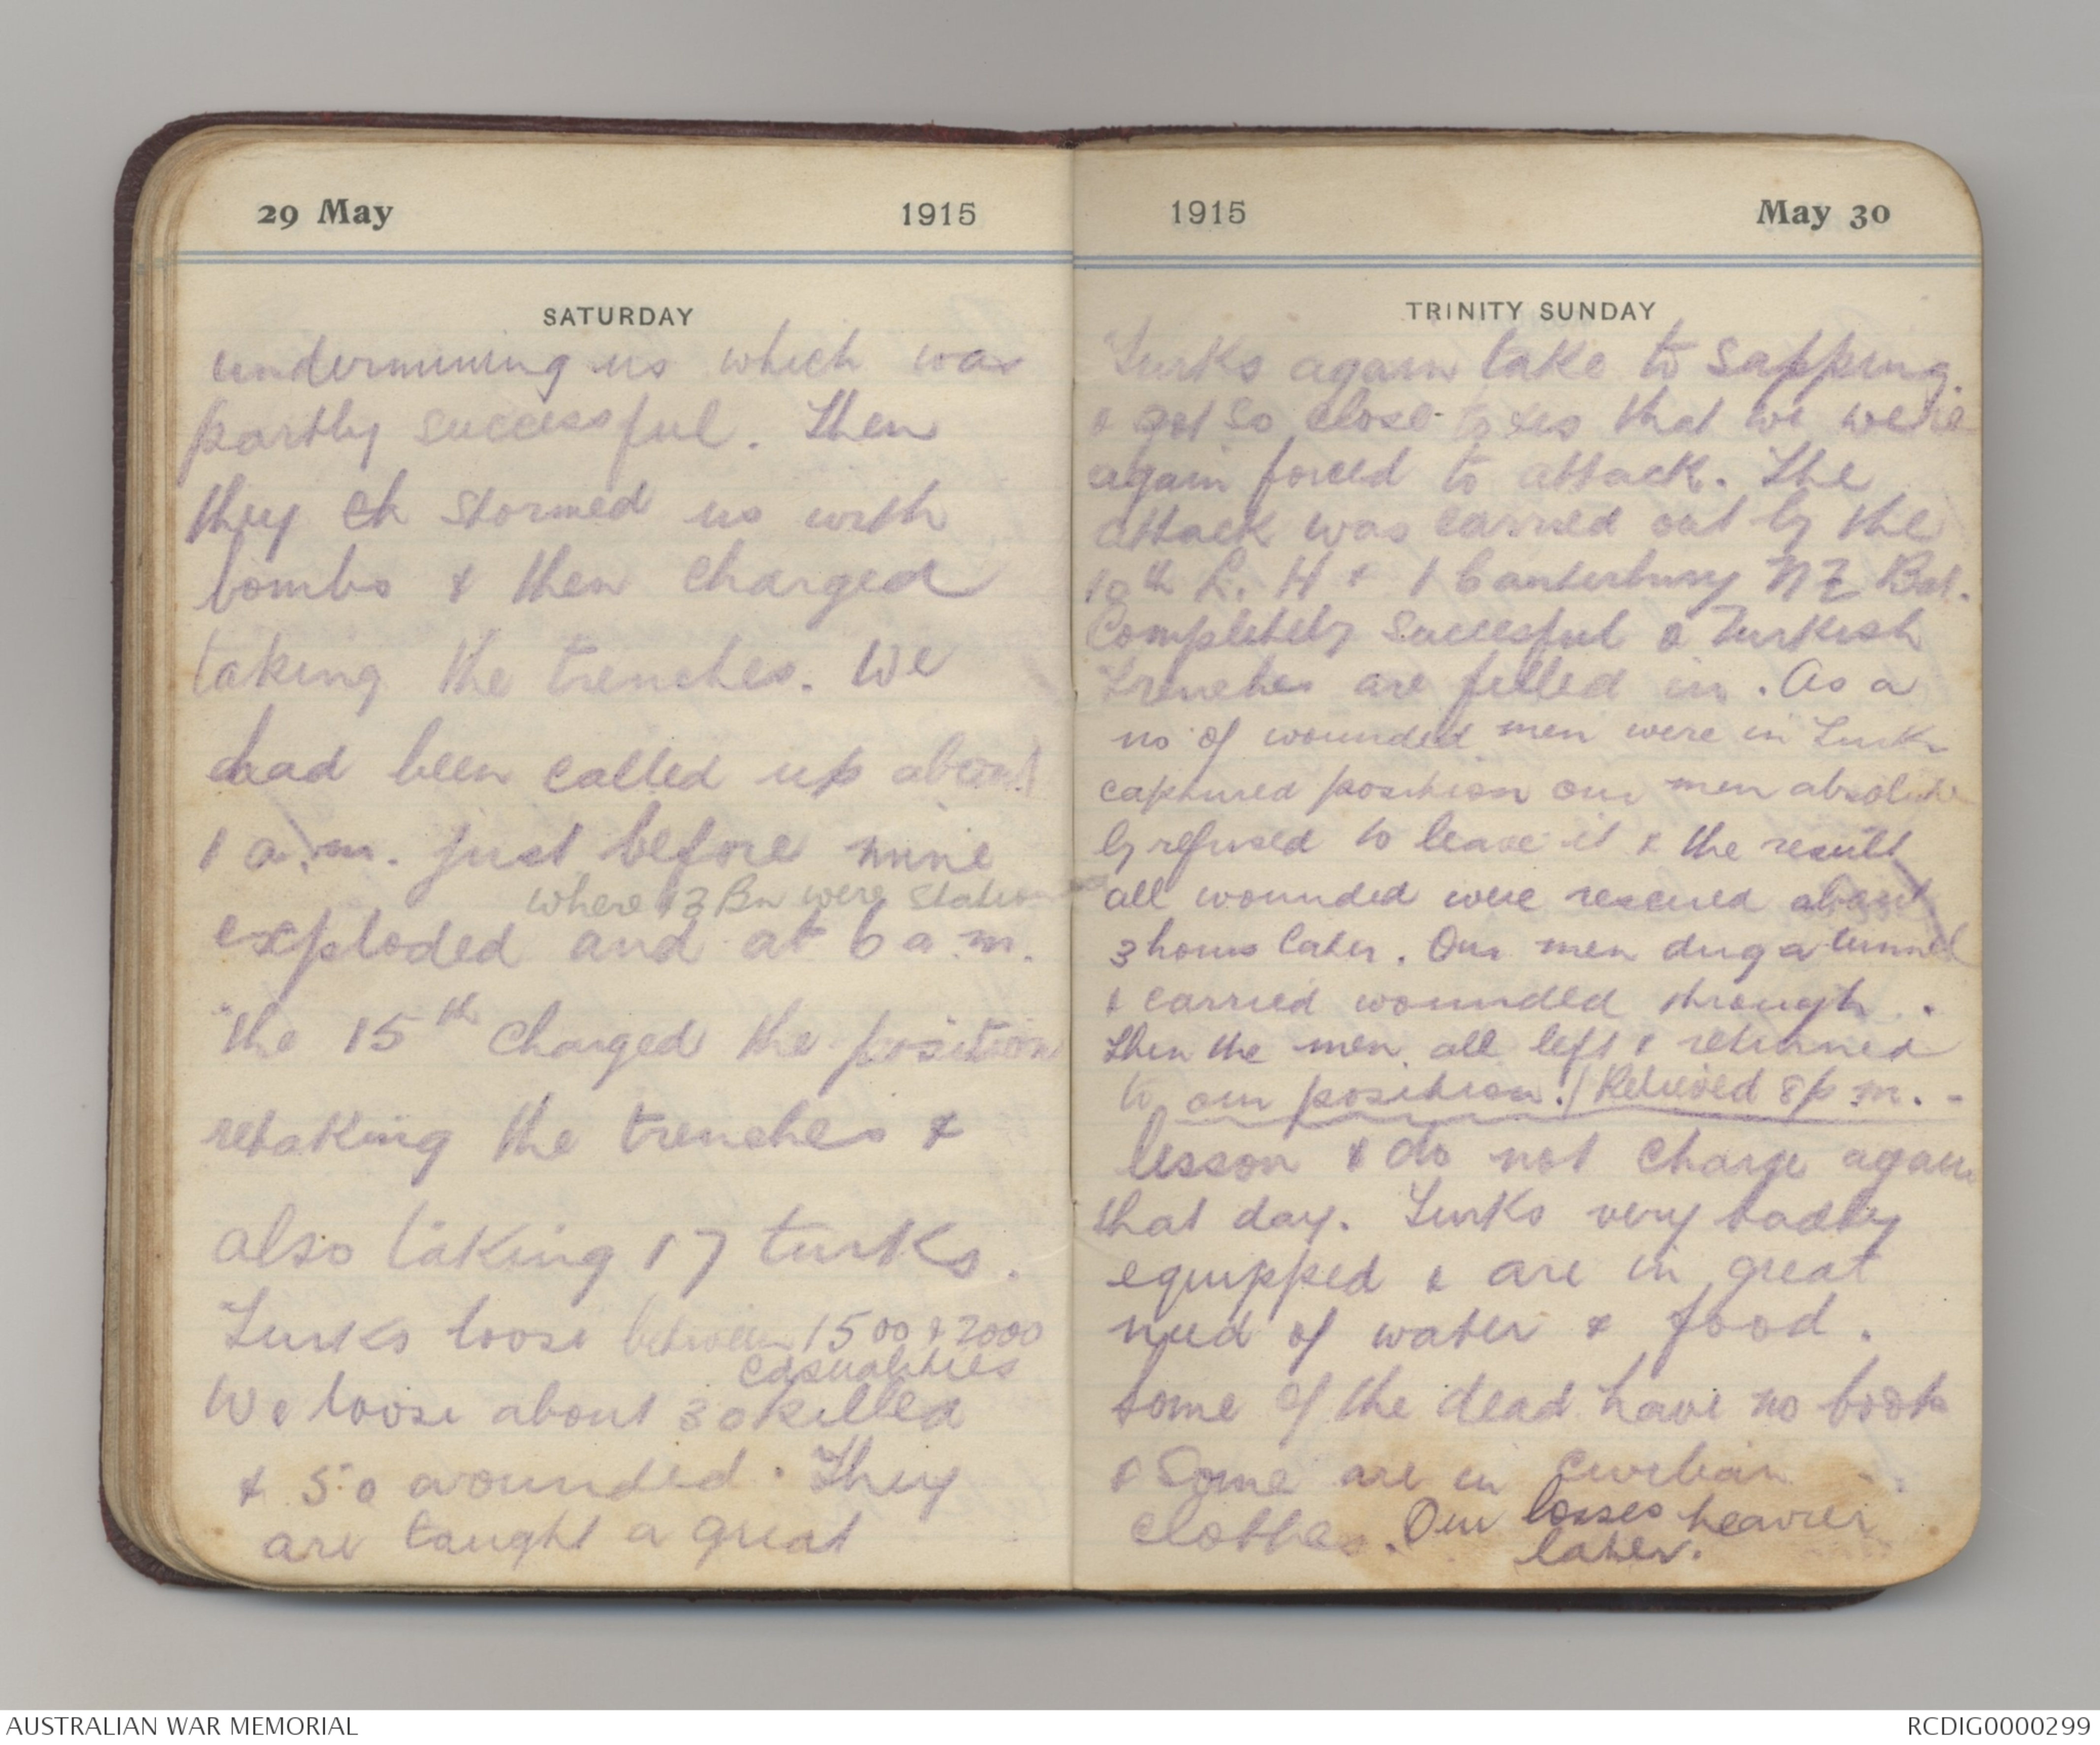 29 May 1915
SATURDAY
undermining us which was
partly successful. Then
they ch stormed us with
bombs & then charged
taking the trenches. We
had been called up about
1 a.m. just before mine
where 13 Bn were station
exploded and at 6 a.m.
the 15th charged the position
retaking the trenches &
also taking 17 turks.
Turks loose between 1500 & 2000
casualities
We loose about 30 killed
& 50 wounded. They
are taught a great
1915 May 30
TRINITY SUNDAY
Turks again take to sapping
& get so close to us that we were
again forced to attack. The
attack was carried out by the
10th L. H & 1 Canterbury NZ Bat.
Completely succesful & Turkish
Trenches are filled in. As a
no of wounded men were in Turks
captured position our men absolute
ly refused to leave it & the result
all wounded were rescued about
3 hours later. Our men dug a tunnel
& carried wounded through.
Then the men all left & returned
to our position./ Relieved 8 p.m. -
lesson & do not charge again
that day. Turks very badly
equipped & are in great
need of water & food.
Some of the dead have no boots
& Some are in civilian
clothes. Our losses heavier
later.
AUSTRALIAN WAR MEMORIAL
RCDIG0000299